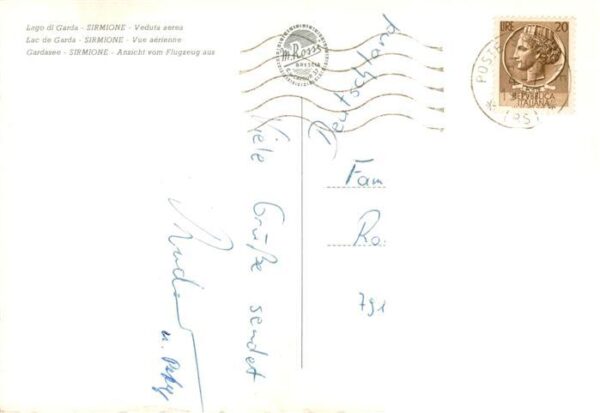 Lago di Garda - SIRMIONE - Veduta aerea
Lac de Garda - SIRMIONE - Vue aérienne
Gardasee - SIRMIONE - Ansicht vom Flugzeug aus
m. Rossi
BRESCIA
LIRE 20
REPVBBLICA
ITALIANA
POSTE
Deutschland
Fam
Ro.
791
Viele Grüße sendet
u.